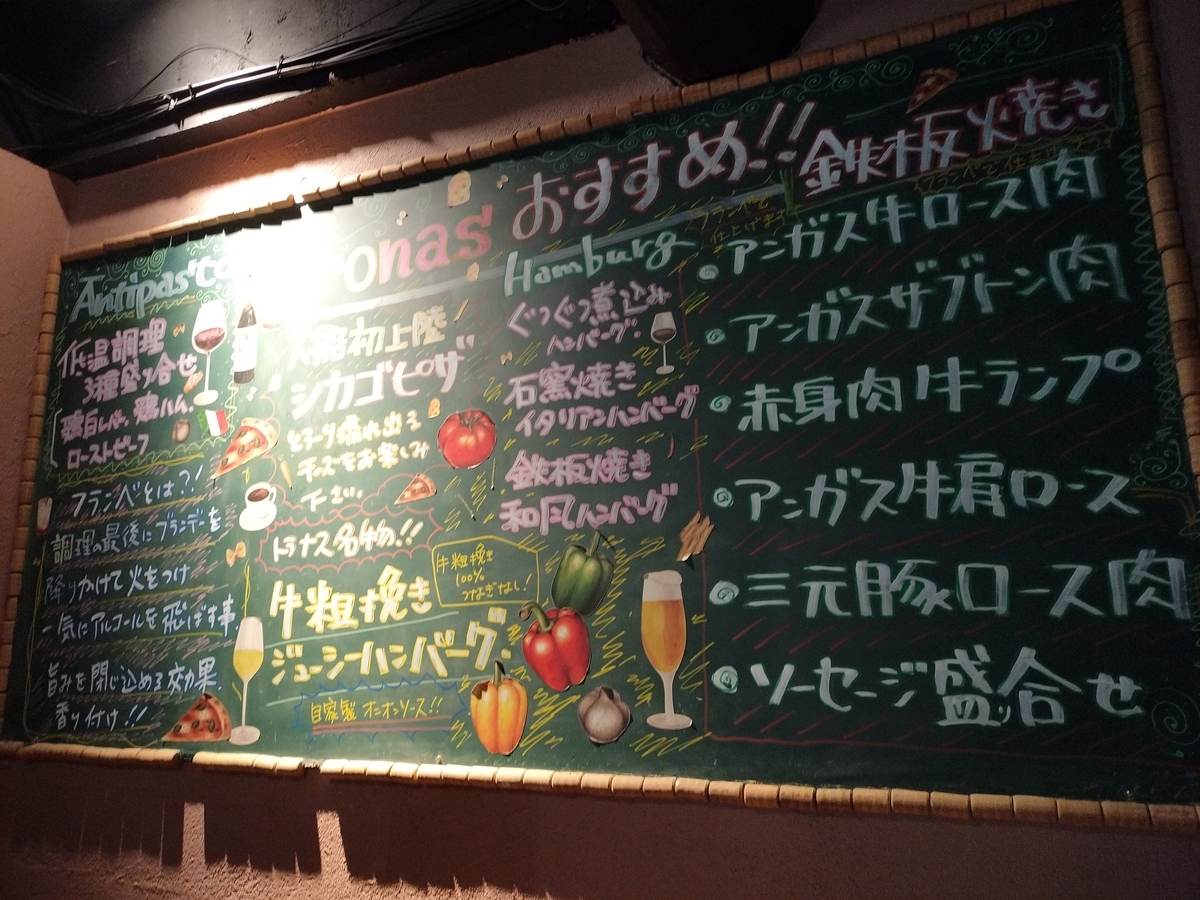 onas おすすめ!!
Antipasto
低温調理
3種盛り合せ
鶏白レバー、鶏ハム、
ローストビーフ
フランベとは?!
調理の最後にブランデーを
降りかけて火をつけ
一気にアルコールを飛ばす事
旨みを閉じ込める効果
香り付け!!
初上陸
シカゴピザ
とろーり溢れ出る
チーズをお楽しみ
下さい
トナス名物!!
牛粗挽き
ジューシーハンバーグ
牛粗挽き
100%
つなぎなし!
自家製 オニオンソース!!
Hamburg
ぐつぐつ煮込み
ハンバーグ
石窯焼き
イタリアンハンバーグ
鉄板焼き
和風ハンバーグ
鉄板火焼き
フランベで
仕上げます
アンガス牛ロース肉
アンガスザブトン肉
赤身肉牛ランプ
アンガス牛肩ロース
三元豚ロース肉
ソーセージ盛り合せ